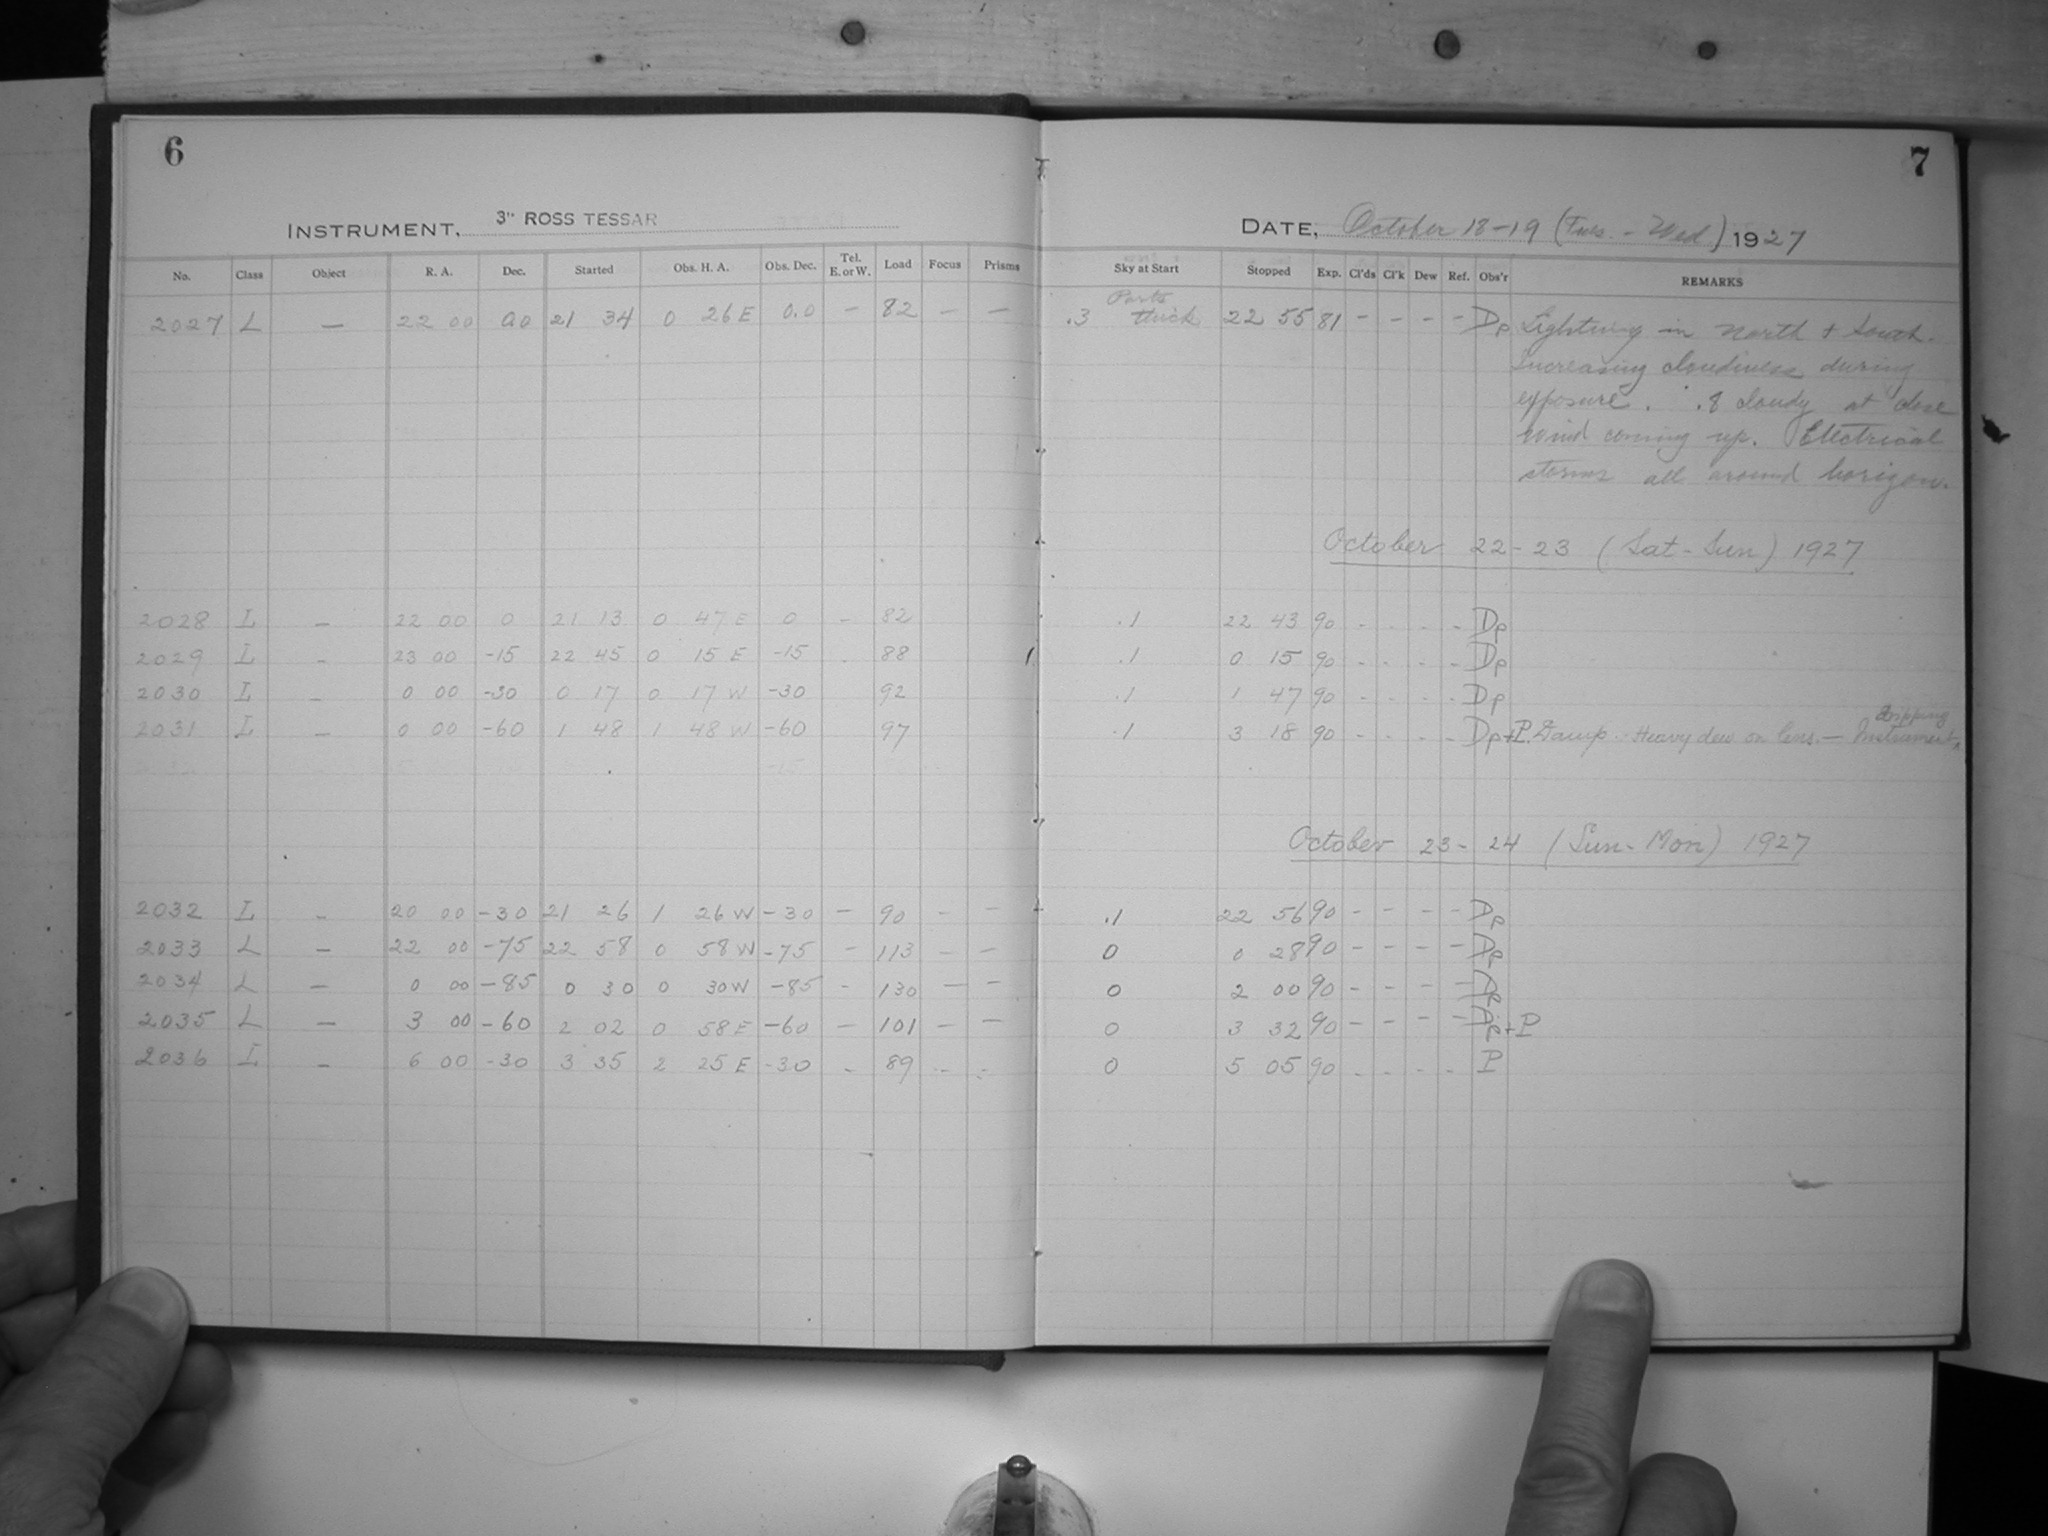 6
INSTRUMENT, 3" ROSS TESSAR
No. Class Object R. A. Dec. Started Obs. H. A. Obs. Dec. Tel. E. or W. Load Focus Prisms
2027 L — 22 00 0.0 21 34 0 26 E 0.0 — 82 — —
2028 L — 22 00 0 21 13 0 47 E 0 - 82
2029 L - 23 00 -15 22 45 0 15 E -15 . 88
2030 L - 0 00 -30 0 17 0 17 W -30 92
2031 L — 0 00 -60 1 48 1 48 W -60 97
2032 L - 20 00 -30 21 26 1 26 W -30 — 90 - —
2033 L — 22 00 -75 22 58 0 58 W -75 - 113 — —
2034 L — 0 00 -85 0 30 0 30 W -85 - 130 — —
2035 L — 3 00 -60 2 02 0 58 E -60 — 101 — —
2036 L — 6 00 -30 3 35 2 25 E -30 - 89 - -
7
DATE, October 18-19 (Tues. - Wed) 1927
Sky at Start Stopped Exp. Cl'ds Cl'k Dew Ref. Obs'r REMARKS
.3 Parts thick 22 55 81 - - - - Dp Lightning in North + South.
Increasing cloudiness during
exposure. .8 cloudy at close
wind coming up. Electrical
storms all around horizon.
October 22-23 (Sat-Sun) 1927
.1 22 43 90 - - - - Dp
.1 0 15 90 - - - - Dp
.1 1 47 90 - - - - Dp
.1 3 18 90 - - - - Dp+P. Damp. Heavy dew on lens. — Instrument dripping
October 23-24 (Sun-Mon) 1927
.1 22 56 90 - - - - Dp
0 0 28 90 - - - - Ap
0 2 00 90 - - - - Ap
0 3 32 90 - - - - Ap+P
0 5 05 90 - - - - P